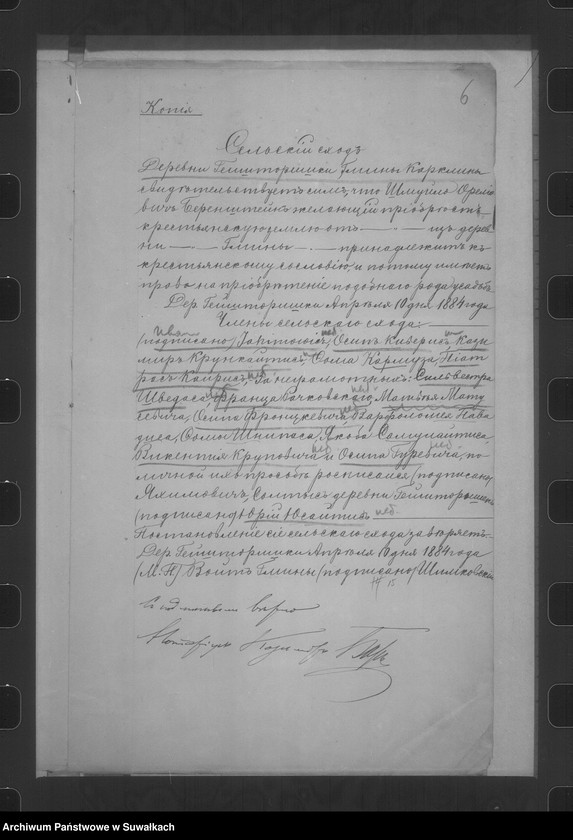 6
Копія
Сельскій сходъ
Деревни Гейшторишки Гмины Карклины
свидѣтельствуетъ симъ, что Шмуйло Орело
вичъ Беренштейнъ желающій пріобрѣсть
крестьянскую землю отъ — . — . — изъ дерев
ни — . — Гмины — . — принадлежитъ къ
крестьянскому сословію, и потому имѣетъ
право на пріобрѣтеніе подобного рода усадьбъ
Дер. Гейшторишки Апрѣля 10 дня 1884 года
Члены сельскаго схода:
Иван
(подписано) Осипъ Кази
миръ Ѳома Кармуза, Піат
росъ За неграмотныхъ: Сильвестра
Шведаса, Франца Рачковскаго, Матвѣя Мату
левича, Осипа Францкевича, Варфоломея Нава
Ѳомы Шлипаса, Якова
Викентія Круповича и Осипа Гуревича, по
личной ихъ просьбѣ росписался (подписано)
Яхимовичъ, Солтысъ деревни Гейшторишки
(подписано) Юрій Юсайтисъ
Постановленіе сіе сельскаго схода завѣряетъ
Дер. Гейшторишки Апрѣля 10 дня 1884 года
(М. П.) Войтъ Гмины (подписано) Шимковскій
Съ подлиннымъ вѣрно
Нотаріусъ
Archiwum Państwowe w Suwałkach